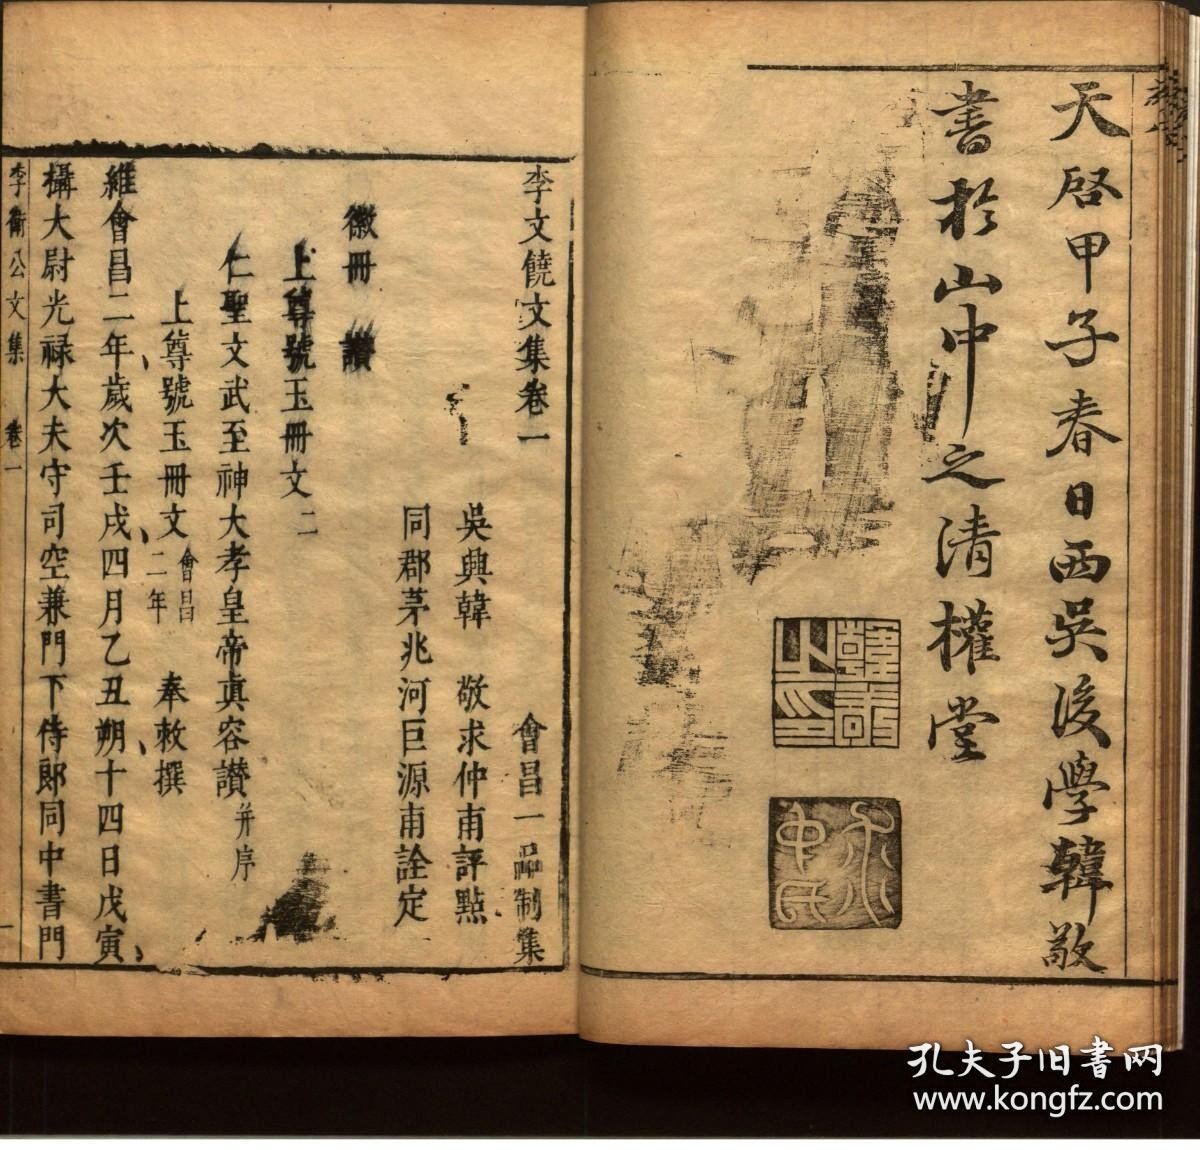 天啓甲子春日西吳後學韓敬
書於山中之清權堂
韓敬之印
李文饒文集卷一 會昌一品制集
吳興韓 敬求仲甫評點
同郡茅兆河巨源甫詮定
徽冊 讚
上尊號玉冊文二
仁聖文武至神大孝皇帝真容讃并序
上尊號玉冊文會昌二年 奉敕撰
維會昌二年歲次壬戌四月乙丑朔十四日戊寅
攝大尉光禄大夫守司空兼門下侍郎同中書門
李衛公文集 卷一 一
孔夫子旧书网
www.kongfz.com